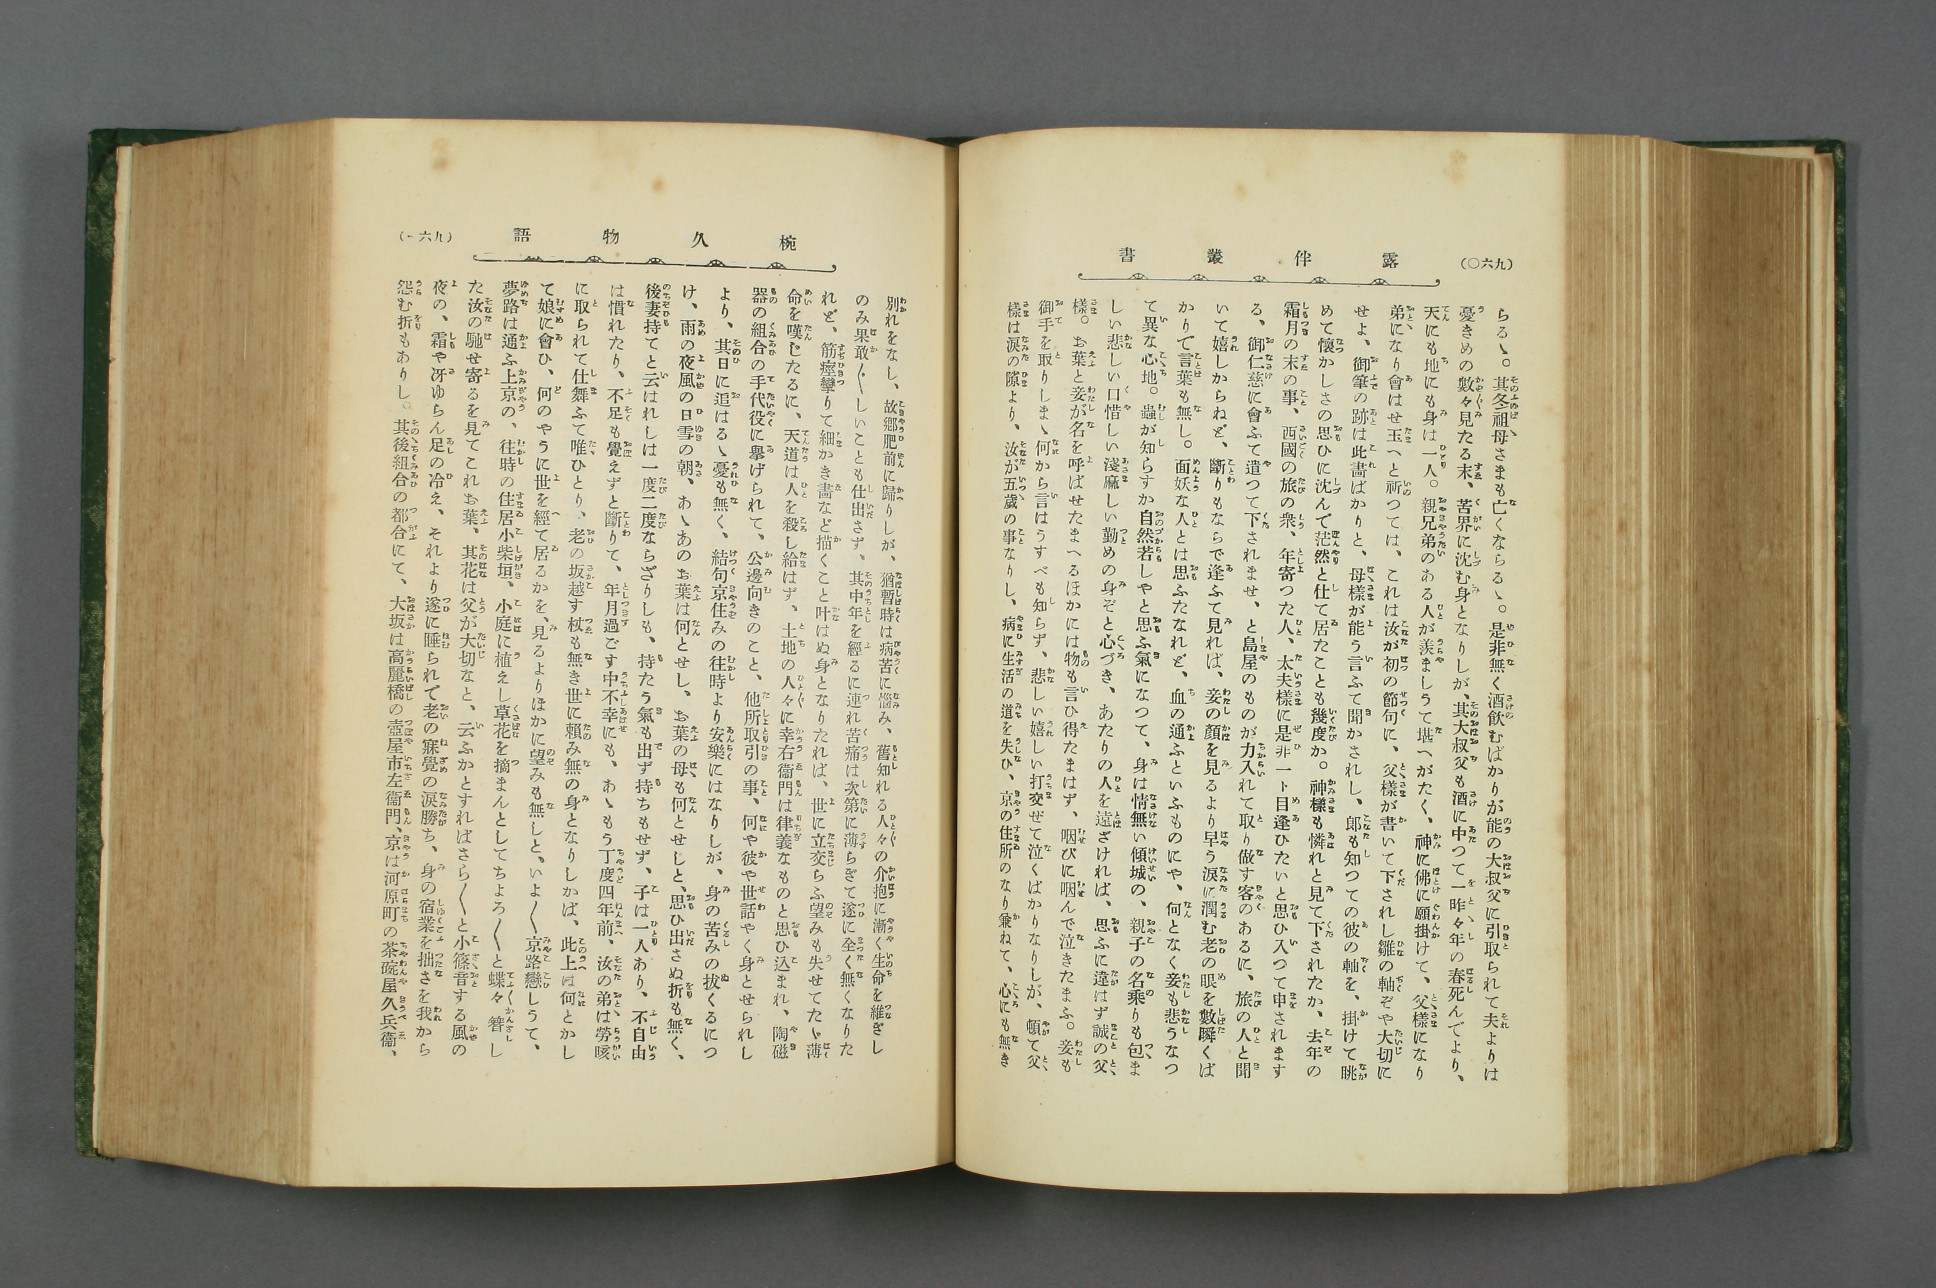 (九六〇)
露伴叢書
らるゝ。其冬祖母さまも亡くならるゝ。是非無く酒飲むばかりが能の大叔父に引取られて夫よりは
憂きめの數々見たる末、苦界に沈む身となりしが、其大叔父も酒に中つて一昨々年の春死んでより、
天にも地にも身は一人。親兄弟のある人が羨ましうて堪へがたく、神に佛に願掛けて、父樣になり
弟になり會はせ玉へと祈つては、これは汝が初の節句に、父樣が書いて下されし雛の軸ぞや大切に
せよ、御筆の跡は此書ばかりと、母樣が能う言ふて聞かされし、郎も知つての彼の軸を、掛けて眺
めて懷かしさの思ひに沈んで茫然と仕て居たことも幾度か。神樣も憐れと見て下されたか、去年の
霜月の末の事、西國の旅の衆、年寄つた人、太夫樣に是非一ト目逢ひたいと思ひ入つて申されます
る、御仁慈に會ふて遣つて下されませ、と島屋のものが力入れて取り做す客のあるに、旅の人と聞
いて嬉しからねど、斷りもならで逢ふて見れば、妾の顏を見るより早う涙に潤む老の眼を數瞬くば
かりて言葉も無し。面妖な人とは思ふたなれど、血の通ふといふものにや、何となく妾も悲うなつ
て異な心地。蟲が知らすか自然若しやと思ふ氣になつて、身は情無い傾城の、親子の名乘りも包ま
しい悲しい口惜しい淺麻しい勤めの身ぞと心づき、あたりの人を遠ざければ、思ふに違はず誠の父
樣。お葉と妾が名を呼ばせたまへるほかには物も言ひ得たまはず、咽びに咽んで泣きたまふ。妾も
御手を取りしまゝ何から言はうすべも知らず、悲しい嬉しい打交ぜて泣くばかりなりしが、頓て父
樣は涙の隙より、汝が五歲の事なりし、病に生活の道を失ひ、京の住所のなり兼ねて、心にも無き
椀久物語
(九六一)
別れをなし、故鄕肥前に歸りしが、猶暫時は病苦に惱み、舊知れる人々の介抱に漸く生命を維ぎし
のみ果敢〳〵しいことも仕出さず、其中年を經るに連れ苦痛は次第に薄らぎて遂に全く無くなりた
れど、筋痙攣りて細かき畫など描くこと叶はぬ身となりたれば、世に立交らふ望みも失せてたゞ薄
命を嘆じたるに、天道は人を殺し給はず、土地の人々に幸右衞門は律義なものと思ひ込まれ、陶磁
器の組合の手代役に擧げられて、公邊向きのこと、他所取引の事、何や彼や世話やく身とせられし
より、其日に追はるゝ憂も無く、結句京住みの往時より安樂にはなりしが、身の苦みの拔くるにつ
け、雨の夜風の日雪の朝、あゝあのお葉は何とせし、お葉の母も何とせしと、思ひ出さぬ折も無く、
後妻持てと云はれしは一度二度ならざりしも、持たう氣も出ず持ちもせず、子は一人あり、不自由
は慣れたり、不足も覺えずと斷りて、年月過ごす中不幸にも、あゝもう丁度四年前、汝の弟は勞咳
に取られて仕舞ふて唯ひとり、老の坂越す杖も無き世に賴み無の身となりしかば、此上は何とかし
て娘に會ひ、何のやうに世を經て居るかを、見るよりほかに望みも無しと、いよ〳〵京路戀しうて、
夢路は通ふ上京の、往時の住居小柴垣、小庭に植えし草花を摘まんとしてちよろ〳〵と蝶々簪し
た汝の馳せ寄るを見てこれお葉、其花は父が大切なと、云ふかとすればさら〳〵と小篠音する風の
夜の、霜や冴ゆらん足の冷え、それより遂に睡られで老の寐覺の涙勝ち、身の宿業を拙さを我から
怨む折もありし。其後組合の都合にて、大坂は高麗橋の壺屋市左衞門、京は河原町の茶碗屋久兵衞、